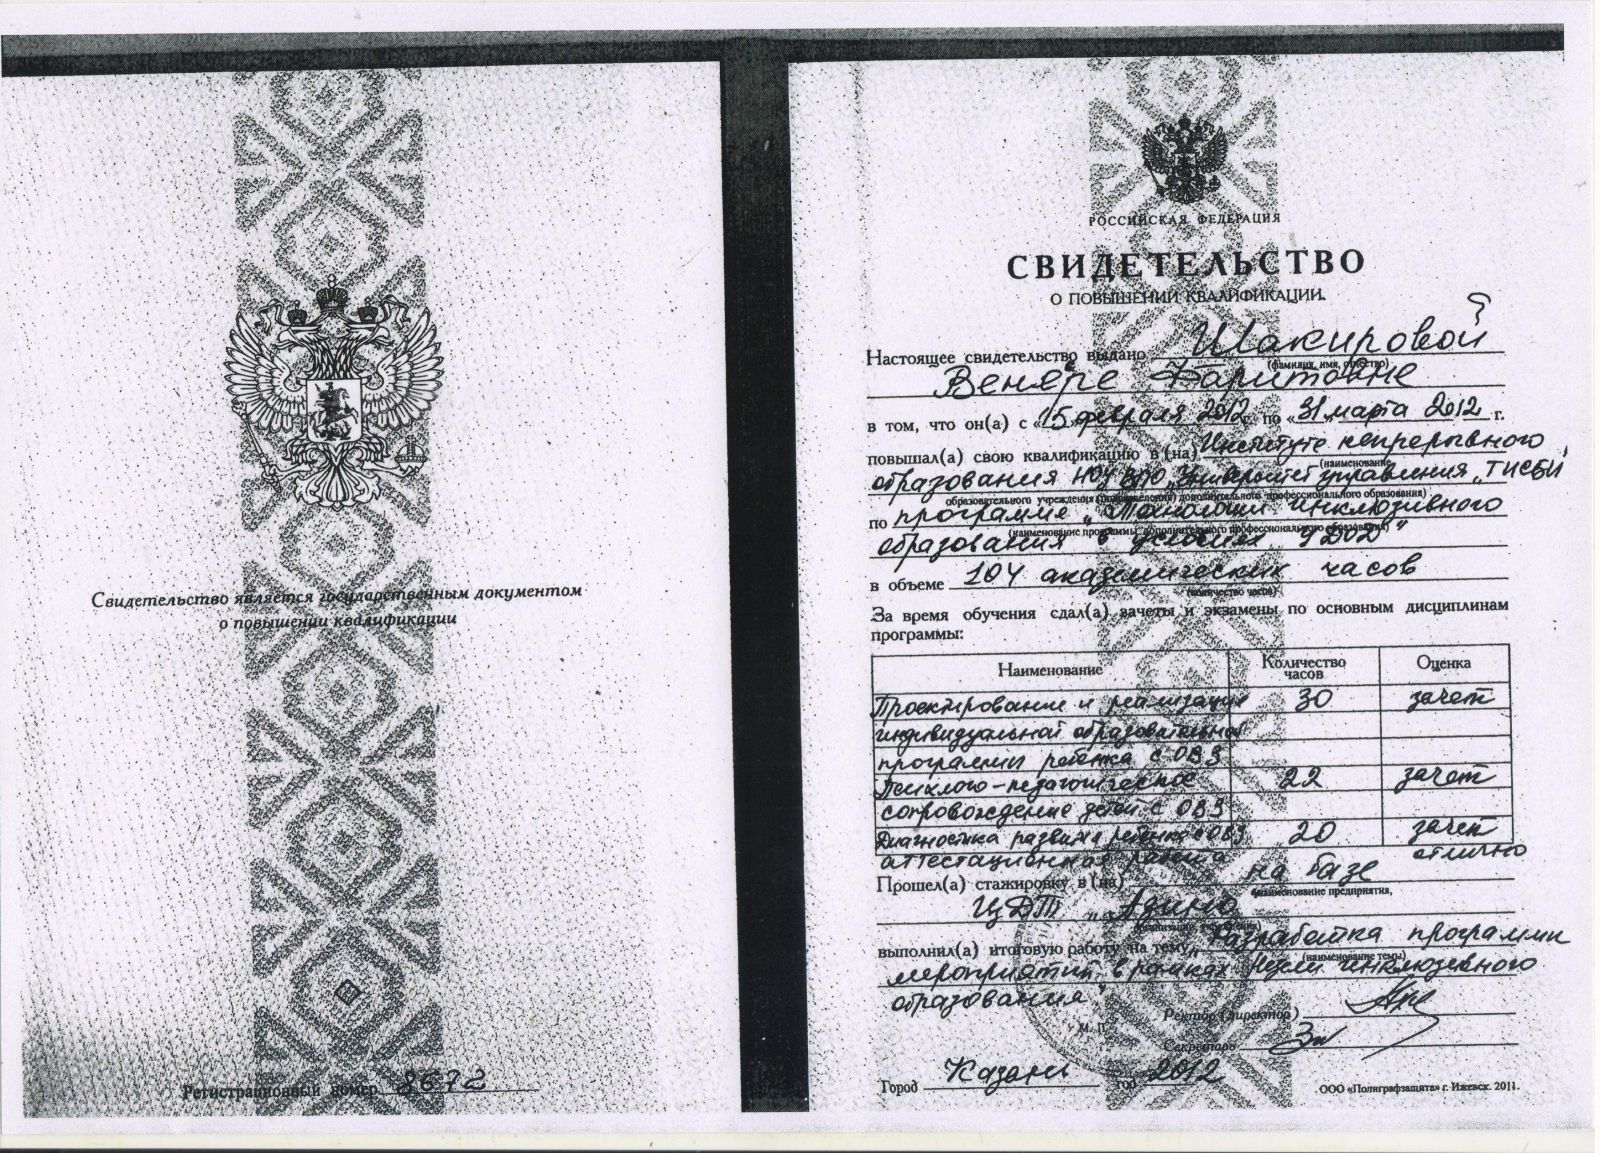 Свидетельство является государственным документом
о повышении квалификации
Регистрационный номер 8672
РОССИЙСКАЯ ФЕДЕРАЦИЯ
СВИДЕТЕЛЬСТВО
О ПОВЫШЕНИИ КВАЛИФИКАЦИИ
Настоящее свидетельство выдано Шакировой
(фамилия, имя, отчество)
Венере Фаритовне
в том, что он(а) с «15» февраля 2012 г. по «31» марта 2012 г.
повышал(а) свою квалификацию в (на) Институте непрерывного
(наименование
образования НОУ ВПО „Университет управления „ТИСБИ"
образовательного учреждения (подразделения) дополнительного профессионального образования)
по программе „Технологии инклюзивного
(наименование программы дополнительного профессионального образования)
образования в условиях УДОД"
в объеме 104 академических часов
(количество часов)
За время обучения сдал(а) зачеты и экзамены по основным дисциплинам
программы:
Наименование Количество часов Оценка
Проектирование и реализация 30 зачет
индивидуальной образовательной
программы ребенка с ОВЗ
Психолого-педагогическое 22 зачет
сопровождение детей с ОВЗ
Диагностика развития ребенка с ОВЗ 20 зачет
аттестационная работа отлично
Прошел(а) стажировку в (на) на базе
(наименование предприятия,
ЦДТ „Азино
организации, учреждения)
выполнил(а) итоговую работу на тему „Разработка программы
(наименование темы)
мероприятий в рамках Недели инклюзивного
образования"
Ректор (директор)
М. П.
Секретарь
Город Казань год 2012
ООО «Полиграфзащита» г. Ижевск. 2011.